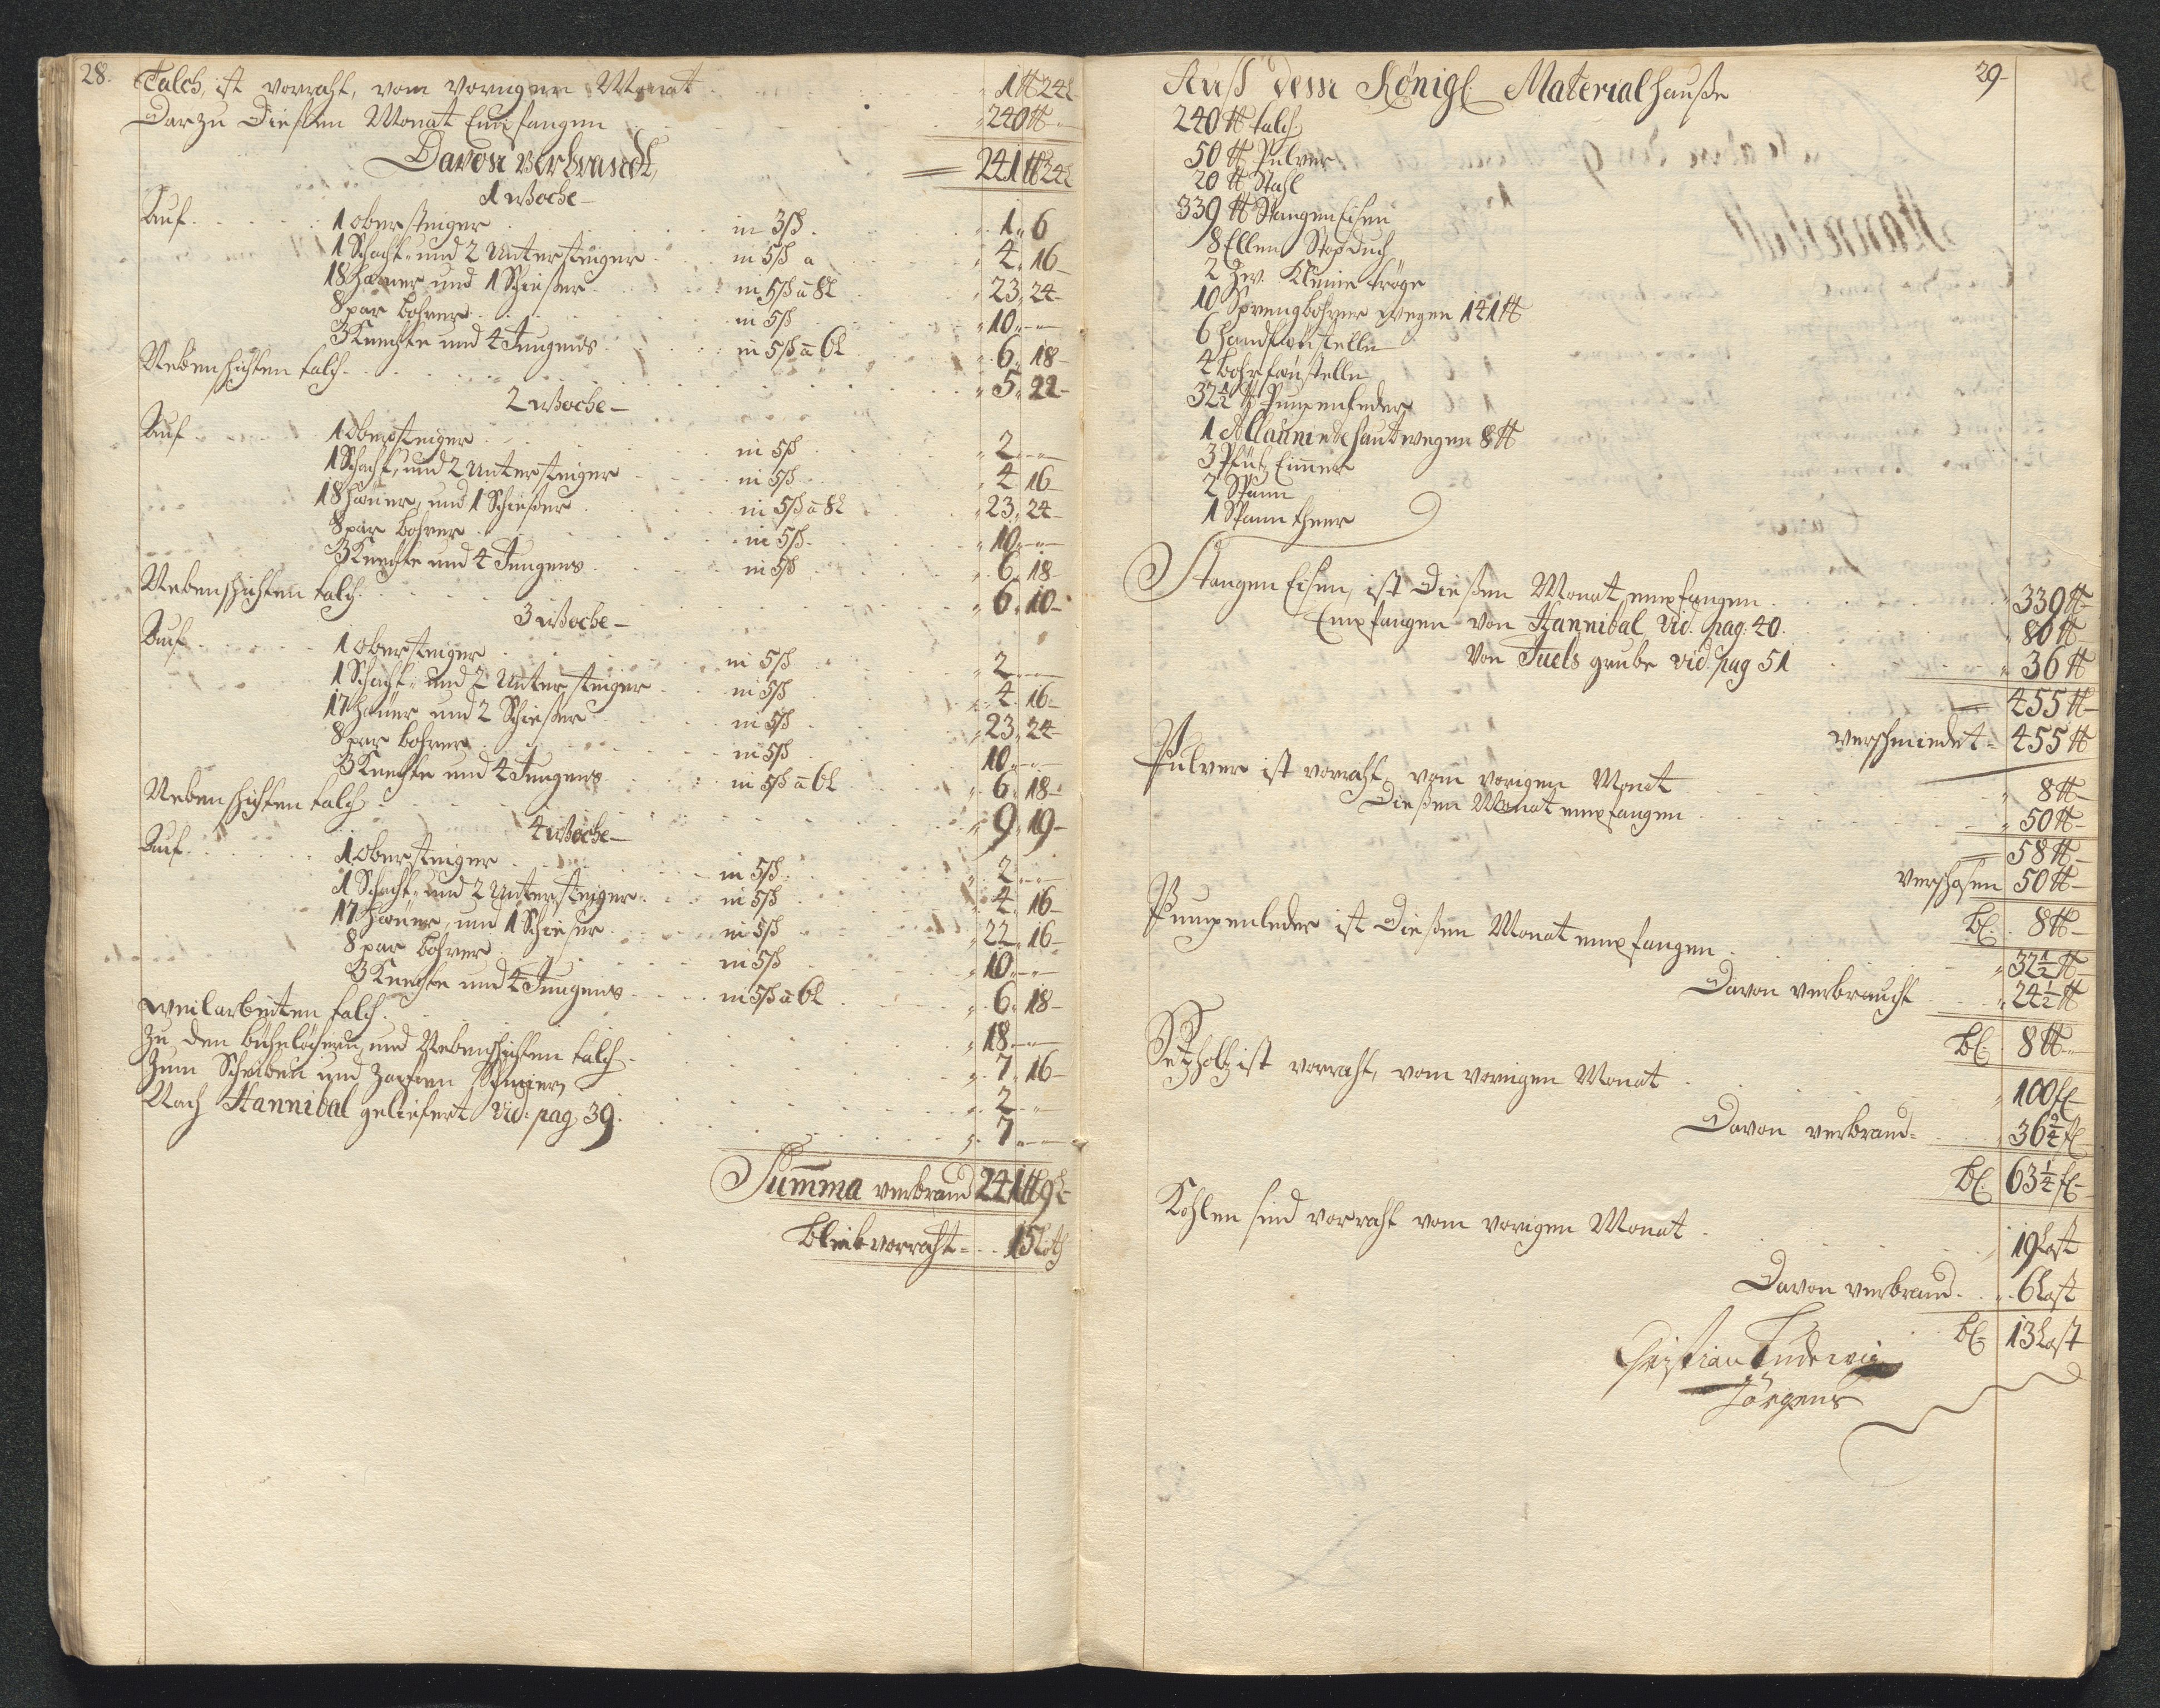 28.
Talch, ist vorraht, vom vorigen Monat 1 ℔ 24 L
Darzu Diesen Monat Empfangen 240 ℔ „
Davon verbrandt, = 241 ℔ 24 L
1 Woche
Auf 1 obersteiger in 3 ß 1 „ 6
1 Schacht- und 2 Untersteiger in 5 ß a 4 „ 16
18 Häuer und 1 Schießer in 5 ß a 8 L 23 „ 24
8 par bohrer in 5 ß 10 „ —
3 Knechte und 4 Jungens in 5 ß a 6 L 6 „ 18
Nebenschichten talch 5 „ 22
2 Woche
Auf 1 Obersteiger in 5 ß 2 „ —
1 Schacht, und 2 Untersteiger in 5 ß 4 16
18 Häuer, und 1 Schießer in 5 ß a 8 L 23 „ 24
8 par bohrer in 5 ß 10 „ —
3 Knechte und 4 Jungens in 5 ß 6 „ 18
Nebenschichten talch 6 „ 10
3 Woche
Auf 1 obersteiger in 5 ß 2 „ —
1 Schacht- und 2 Untersteiger in 5 ß 4 „ 16
17 Häuer und 2 Schießer in 5 ß 23 „ 24
8 par bohrer in 5 ß 10 „ —
3 Knechte und 4 Jungens in 5 ß a 6 L 6 „ 18
Nebenschichten talch 9 „ 19
4 Woche
Auf 1 obersteiger in 5 ß 2 „ —
1 Schacht- und 2 Untersteiger in 5 ß 4 „ 16
17 Häuer, und 1 Schieser in 5 ß 22 „ 16
8 par bohrer in 5 ß 10 „ —
3 Knechte und 4 Jungens in 5 ß a 6 L 6 „ 18
weilarbeiten talch 18 „ —
Zu den und Nebenschichten talch 7 „ 16
Zum Scheiben und Zapfen Schmier, 2 „ —
Nach Hannibal geliefert Vid: pag. 39. 7 „ —
Summa verbrand 241 ℔ 9 L
bleibt vorraht = 15 Loth
29
Auß dem Königl. Materialhauße
240 ℔ talch
50 ℔ Pulver
20 ℔ Stahl
339 ℔ Stangen Eisen
8 Ellen Stopduch
2 Kleine tröge
10 Sprengbohrer wegen 141 ℔
6 handfäustelle
4 bohrfäustelle
32½ ℔ Pumpenleder
1 Allaunirte haut wegen 8 ℔
3 Pfütz Eimer
2 Spann
1 Spann theer
Stangen Eisen, ist Dießen Monat empfangen 339 ℔
Empfangen von Hannibal Vid. pag. 40. 80 ℔
Von Juels grube vid. pag 51 36 ℔
= 455 ℔
verschmiedet = 455 ℔
Pulver ist vorraht, vom vorigen Monat 8 ℔
Dießen Monat empfangen 50 ℔
= 58 ℔
verschosen 50 ℔
bl. 8 ℔
Pumpenleder ist Dießen Monat empfangen 32½ ℔
Davon verbraucht 24½ ℔
bl. 8 ℔
Setzholtz ist vorraht, vom vorigen Monat 100 fl
Davon verbrand = 36¾ fl
bl. 63¼ fl
Kohlen sind vorraht vom vorigen Monat 19 Last
Davon verbrand 6 Last
bl. 13 Last
Christian Ludewig
Jörgens